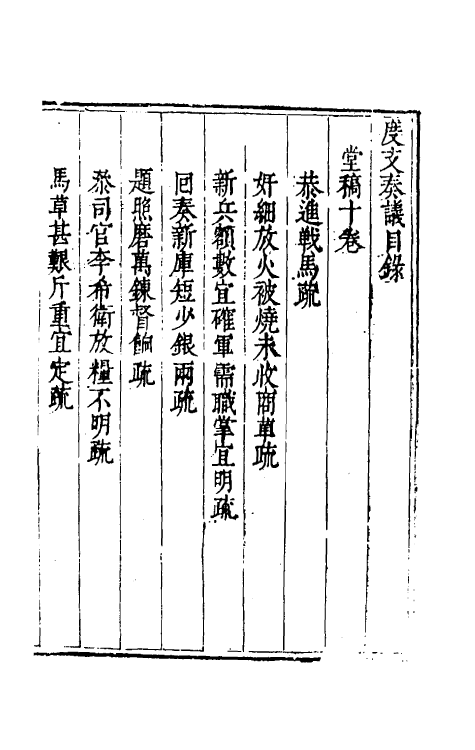 度支奏議目錄
堂稿十卷
恭進戰馬疏
奸細放火被燒未收商草疏
新兵額數宜確軍需職掌宜明疏
回奏新庫短少銀兩疏
題照磨萬鍊督餉疏
叅司官李希衛放糧不明疏
馬草甚艱斤重宜定疏